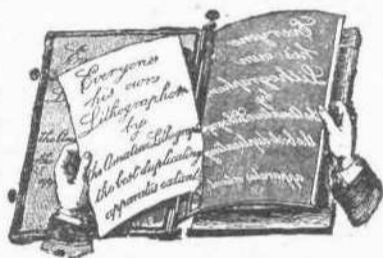 Everyone
his own
Lithographer
by
the Amateur Lithograph
the best duplicating
apparatus extant